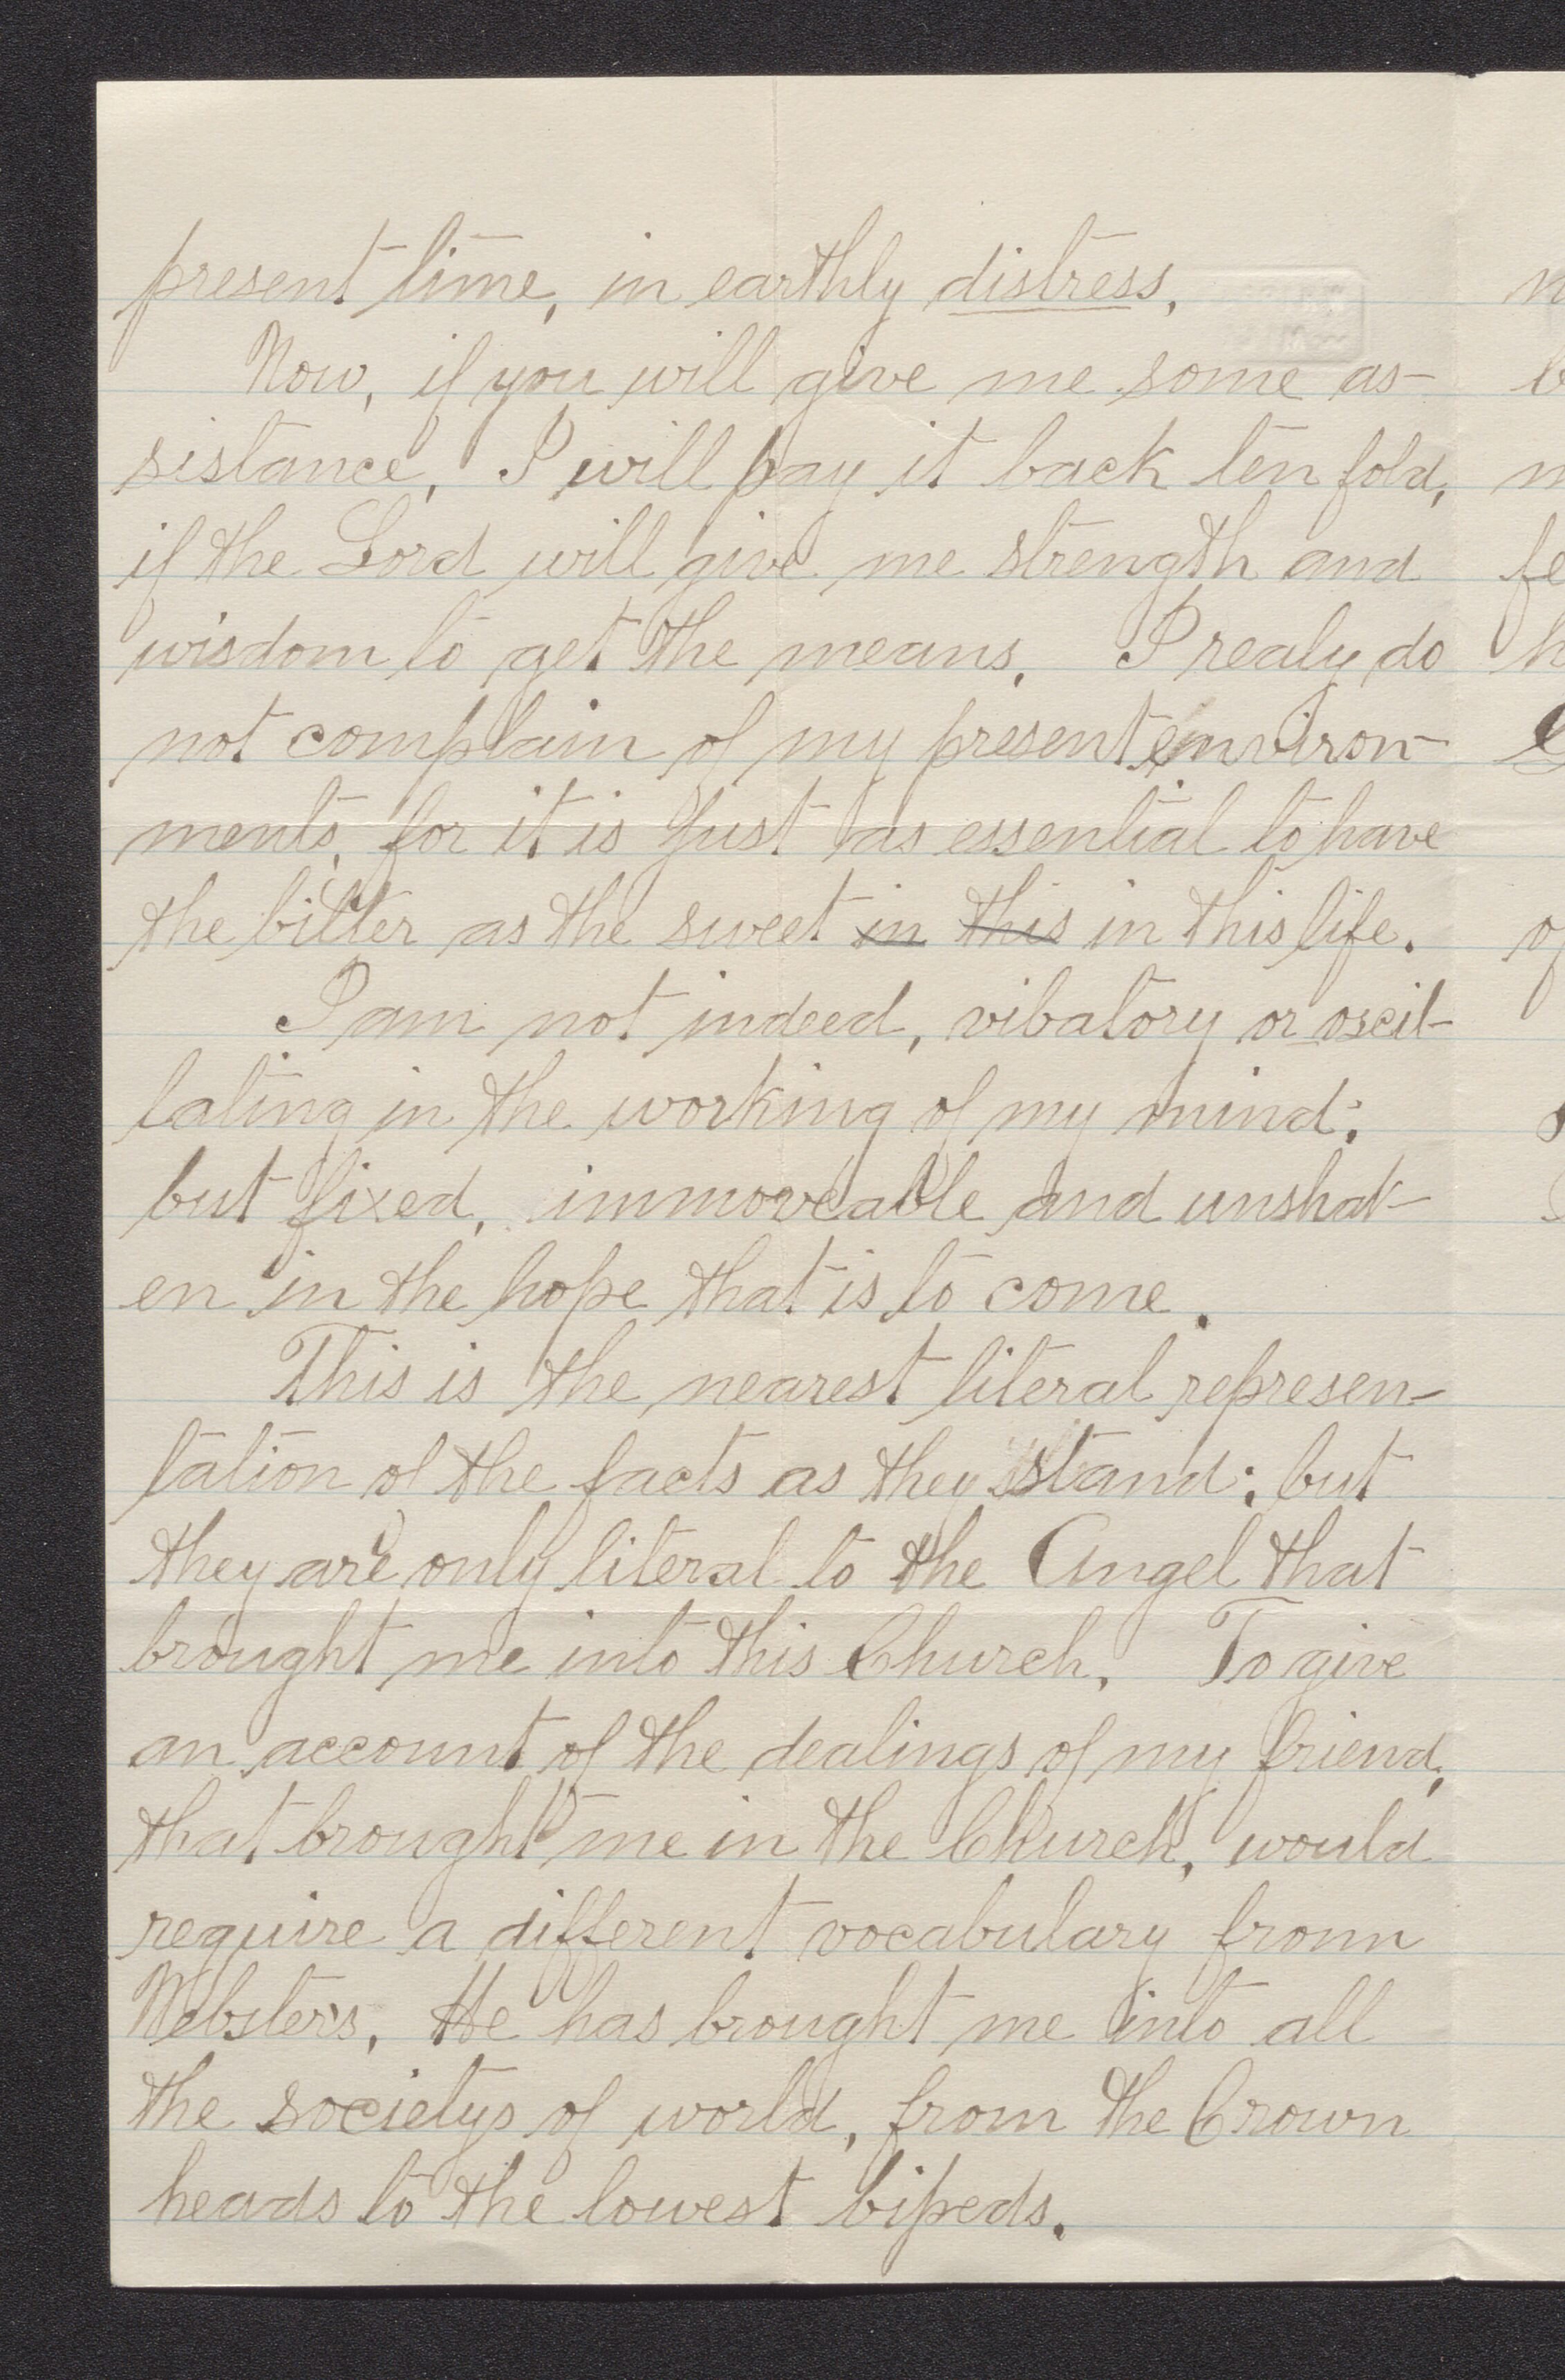 present time, in earthly distress.
Now, if you will give me some as-
sistance, I will pay it back ten fold,
if the Lord will give me strength and
wisdom to get the means. I realy do
not complain of my present environ-
ments, for it is just as essential to have
the bitter as the sweet in this in this life.
I am not indeed, vibatory or oscil-
lating in the working of my mind;
but fixed, immoveable and unshak-
en in the hope that is to come.
This is the nearest literal represen-
tation of the facts as they stand; but
they are only literal to the Angel that
brought me into this Church. To give
an account of the dealings of my friend,
that brought me in the Church, would
require a different vocabulary from
Websters. He has brought me into all
the societys of world, from the Crown
heads to the lowest bipeds.